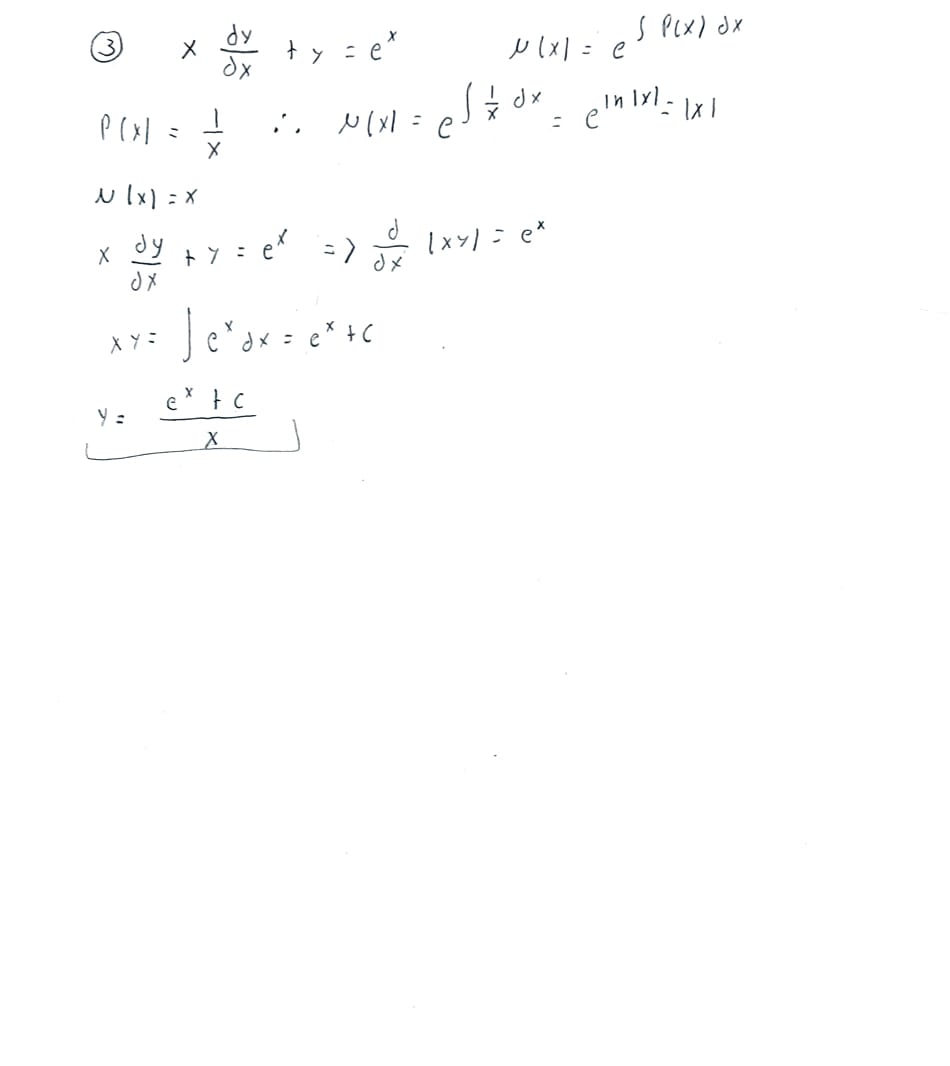 ③ x dy/dx + y = e^x μ(x) = e^∫ P(x) dx
P(x) = 1/x ∴ μ(x) = e^∫ 1/x dx = e^ln|x| = |x|
μ(x) = x
x dy/dx + y = e^x => d/dx (xy) = e^x
xy = ∫ e^x dx = e^x + C
y = (e^x + C)/x